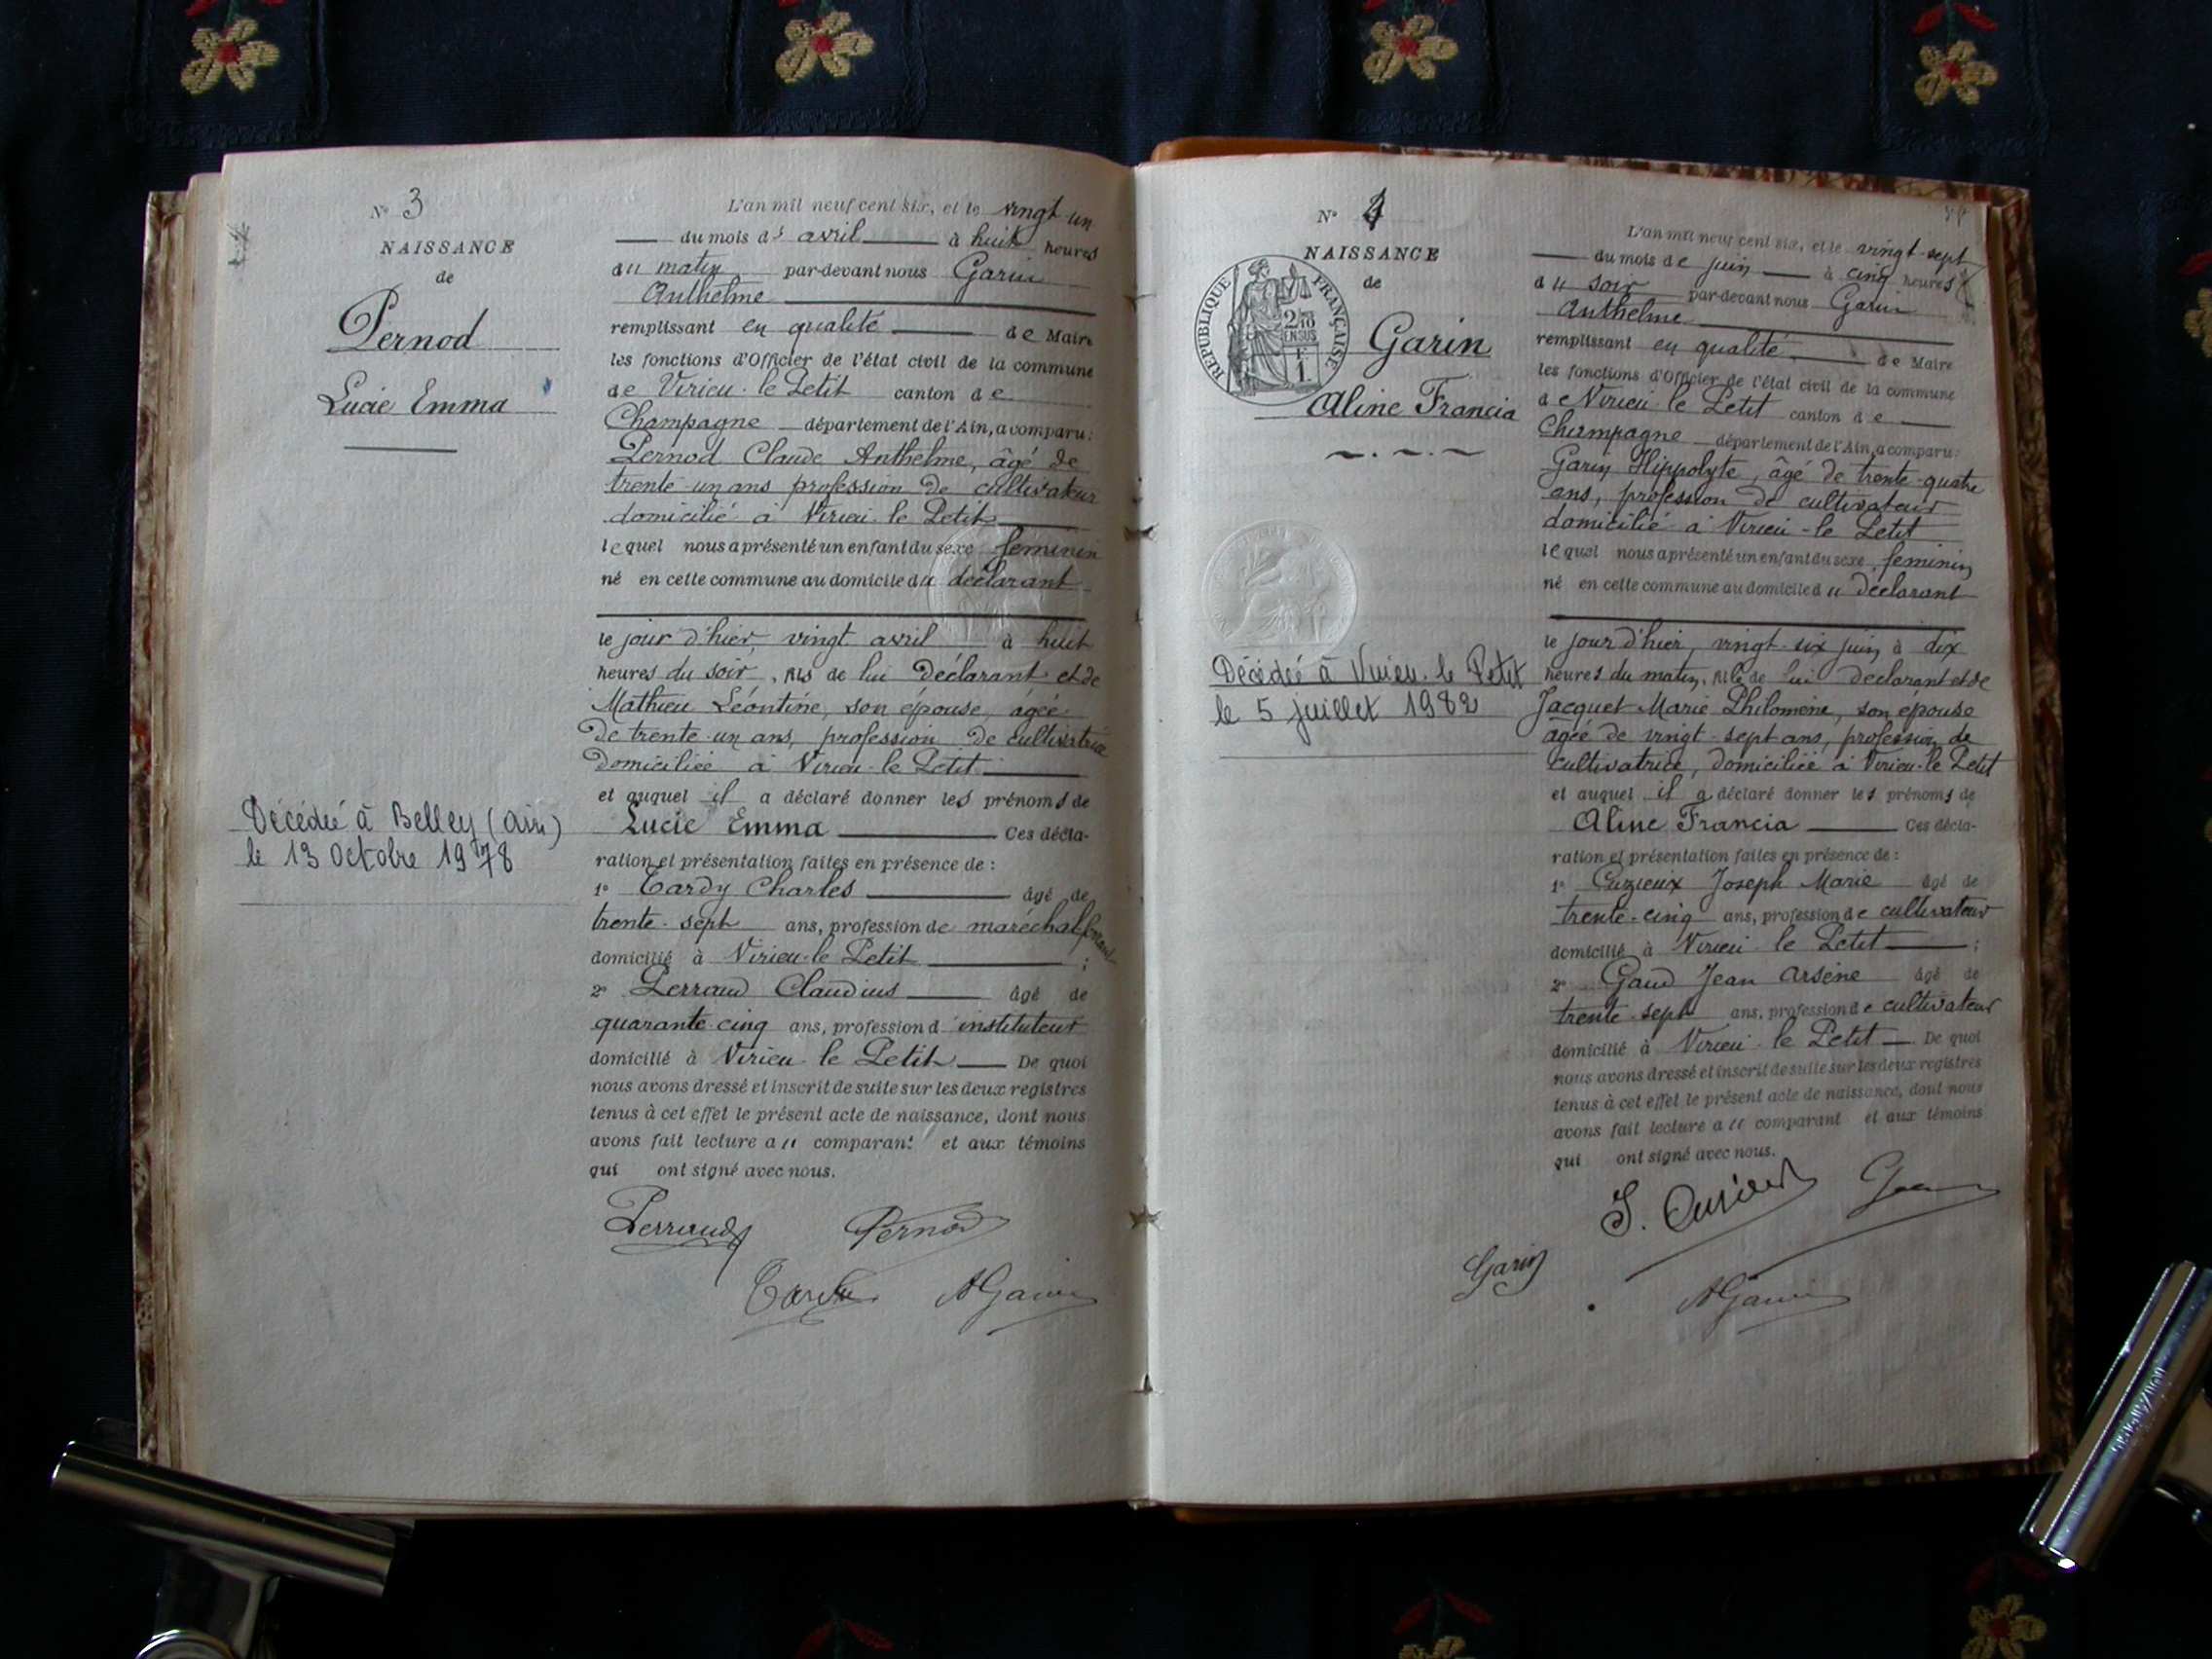 N° 3
NAISSANCE
de
Pernod
Lucie Emma
Décédée à Belley (Ain)
le 13 Octobre 1978
L'an mil neuf cent six, et le vingt un
du mois d' avril à huit heures
du matin par-devant nous Garin
Anthelme
remplissant en qualité de Maire
les fonctions d'Officier de l'état civil de la commune
de Virieu-le-Petit canton de
Champagne département de l'Ain, a comparu:
Pernod Claude Anthelme, âgé de
trente un ans profession de cultivateur
domicilié à Virieu-le-Petit
lequel nous a présenté un enfant du sexe feminin
né en cette commune au domicile du déclarant
le jour d'hier, vingt avril à huit
heures du soir, fils de lui déclarant et de
Mathieu Léontine, son épouse, âgée
de trente-un ans, profession de cultivatrice
domiciliée à Virieu-le-Petit
et auquel il a déclaré donner les prénoms de
Lucie Emma Ces décla-
ration et présentation faites en présence de :
1° Tardy Charles âgé de
trente-sept ans, profession de maréchal ferrant
domicilié à Virieu-le-Petit ;
2° Perraud Claudius âgé de
quarante-cinq ans, profession d'instituteur
domicilié à Virieu-le-Petit De quoi
nous avons dressé et inscrit de suite sur les deux registres
tenus à cet effet le présent acte de naissance, dont nous
avons fait lecture au comparant et aux témoins
qui ont signé avec nous.
Perraud Pernod
Tardy AGarin
N° 4
NAISSANCE
de
RÉPUBLIQUE FRANÇAISE
2/10 EN SUS
1 F.
Garin
Aline Francia
Décédée à Virieu-le-Petit
le 5 juillet 1982
L'an mil neuf cent six, et le vingt-sept
du mois de juin à cinq heures
du soir par-devant nous Garin
Anthelme
remplissant en qualité de Maire
les fonctions d'Officier de l'état civil de la commune
de Virieu-le-Petit canton de
Champagne département de l'Ain, a comparu:
Garin Hippolyte, âgé de trente-quatre
ans, profession de cultivateur
domicilié à Virieu-le-Petit
lequel nous a présenté un enfant du sexe feminin
né en cette commune au domicile du déclarant
le jour d'hier, vingt-six juin à dix
heures du matin, fille de lui declarant et de
Jacquet Marie Philomène, son épouse
âgée de vingt-sept ans, profession de
cultivatrice, domiciliée à Virieu-le-Petit
et auquel il a déclaré donner les prénoms de
Aline Francia Ces décla-
ration et présentation faites en présence de :
1° Cuzieux Joseph Marie âgé de
trente-cinq ans, profession de cultivateur
domicilié à Virieu-le-Petit ;
2° Gaud Jean Arsène âgé de
trente-sept ans, profession de cultivateur
domicilié à Virieu-le-Petit De quoi
nous avons dressé et inscrit de suite sur les deux registres
tenus à cet effet le présent acte de naissance, dont nous
avons fait lecture au comparant et aux témoins
qui ont signé avec nous.
Garin
AGarin